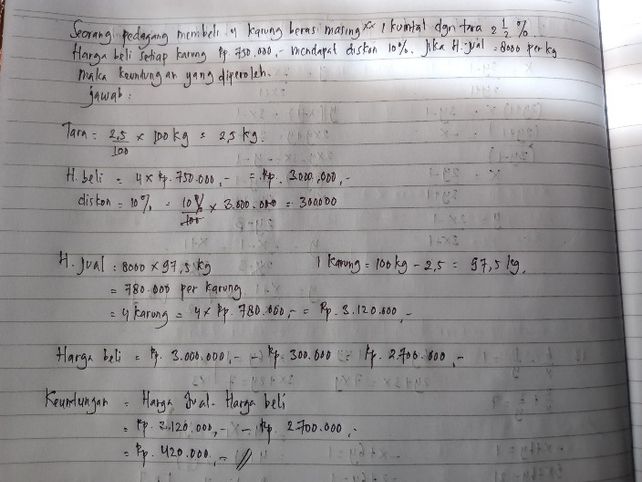 Seorang pedagang membeli 4 karung beras masing×× 1 kuintal dgn tara 2 1/2 %.
Harga beli setiap karung Rp 750.000,- mendapat diskon 10%. Jika H. Jual = 8000 per kg
maka keuntungan yang diperoleh.
jawab :
Tara = 2,5/100 × 100 kg = 2,5 kg.
H. beli = 4 × Rp. 750.000,- = Rp. 3.000.000,-
diskon = 10% = 10%/100 × 3.000.000 = 300000
H. Jual = 8000 × 97,5 kg 1 karung = 100 kg - 2,5 = 97,5 kg.
= 780.000 per karung
= 4 karung = 4 × Rp. 780.000,- = Rp. 3.120.000,-
Harga beli = Rp. 3.000.000,- - Rp. 300.000 = Rp. 2.700.000,-
Keuntungan = Harga Jual - Harga beli
= Rp. 3.120.000,- - Rp. 2.700.000,-
= Rp. 420.000,- //